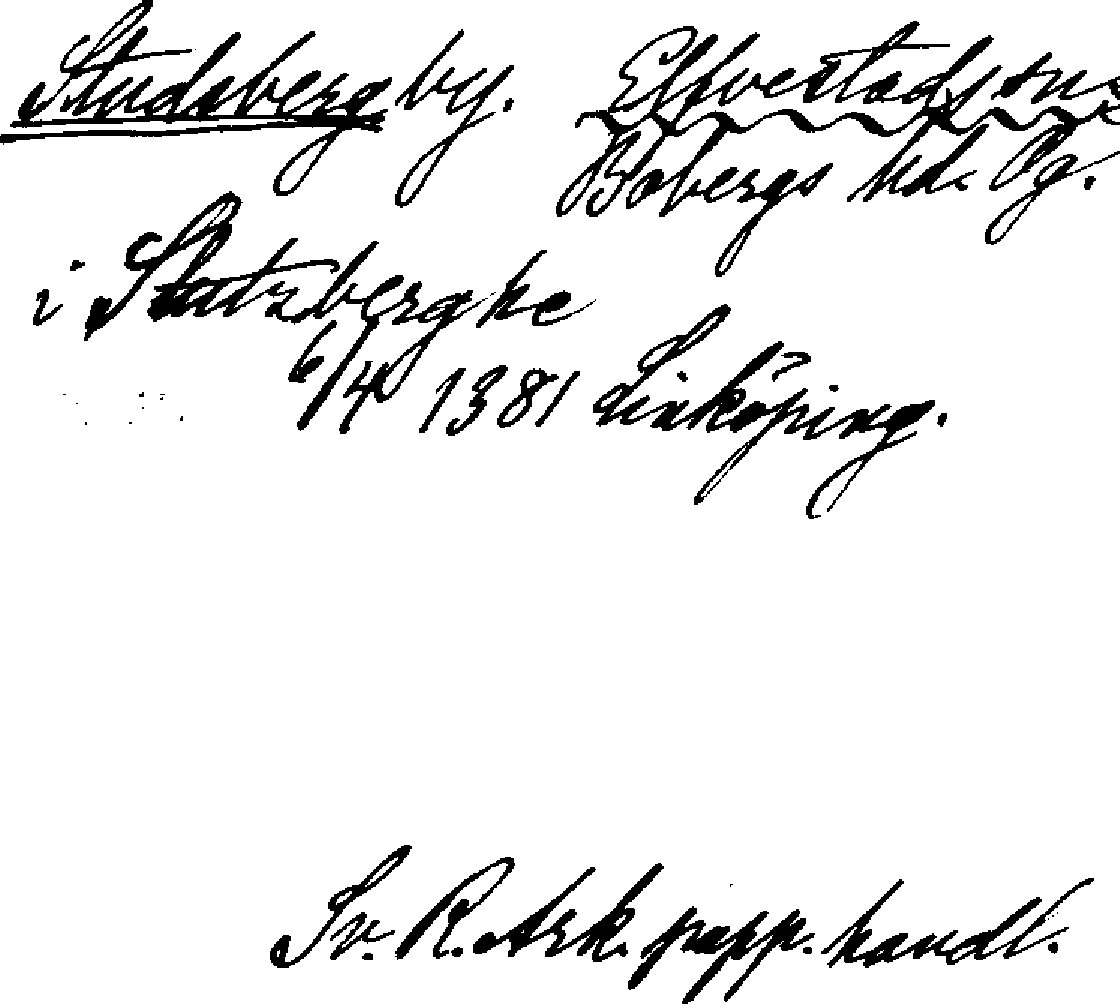 Studsberg by. Elfvestads sn
Bobergs hd. Ög.
i Stutzberghe
6/4 1381 Linköping.
Sv. R. Ark. papp. handl.